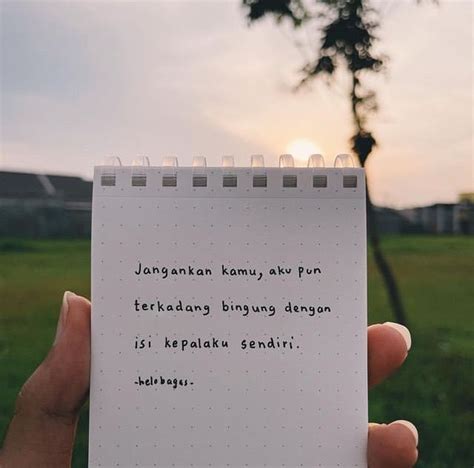 Jangankan kamu, aku pun
terkadang bingung dengan
isi kepalaku sendiri.
-helobagas-